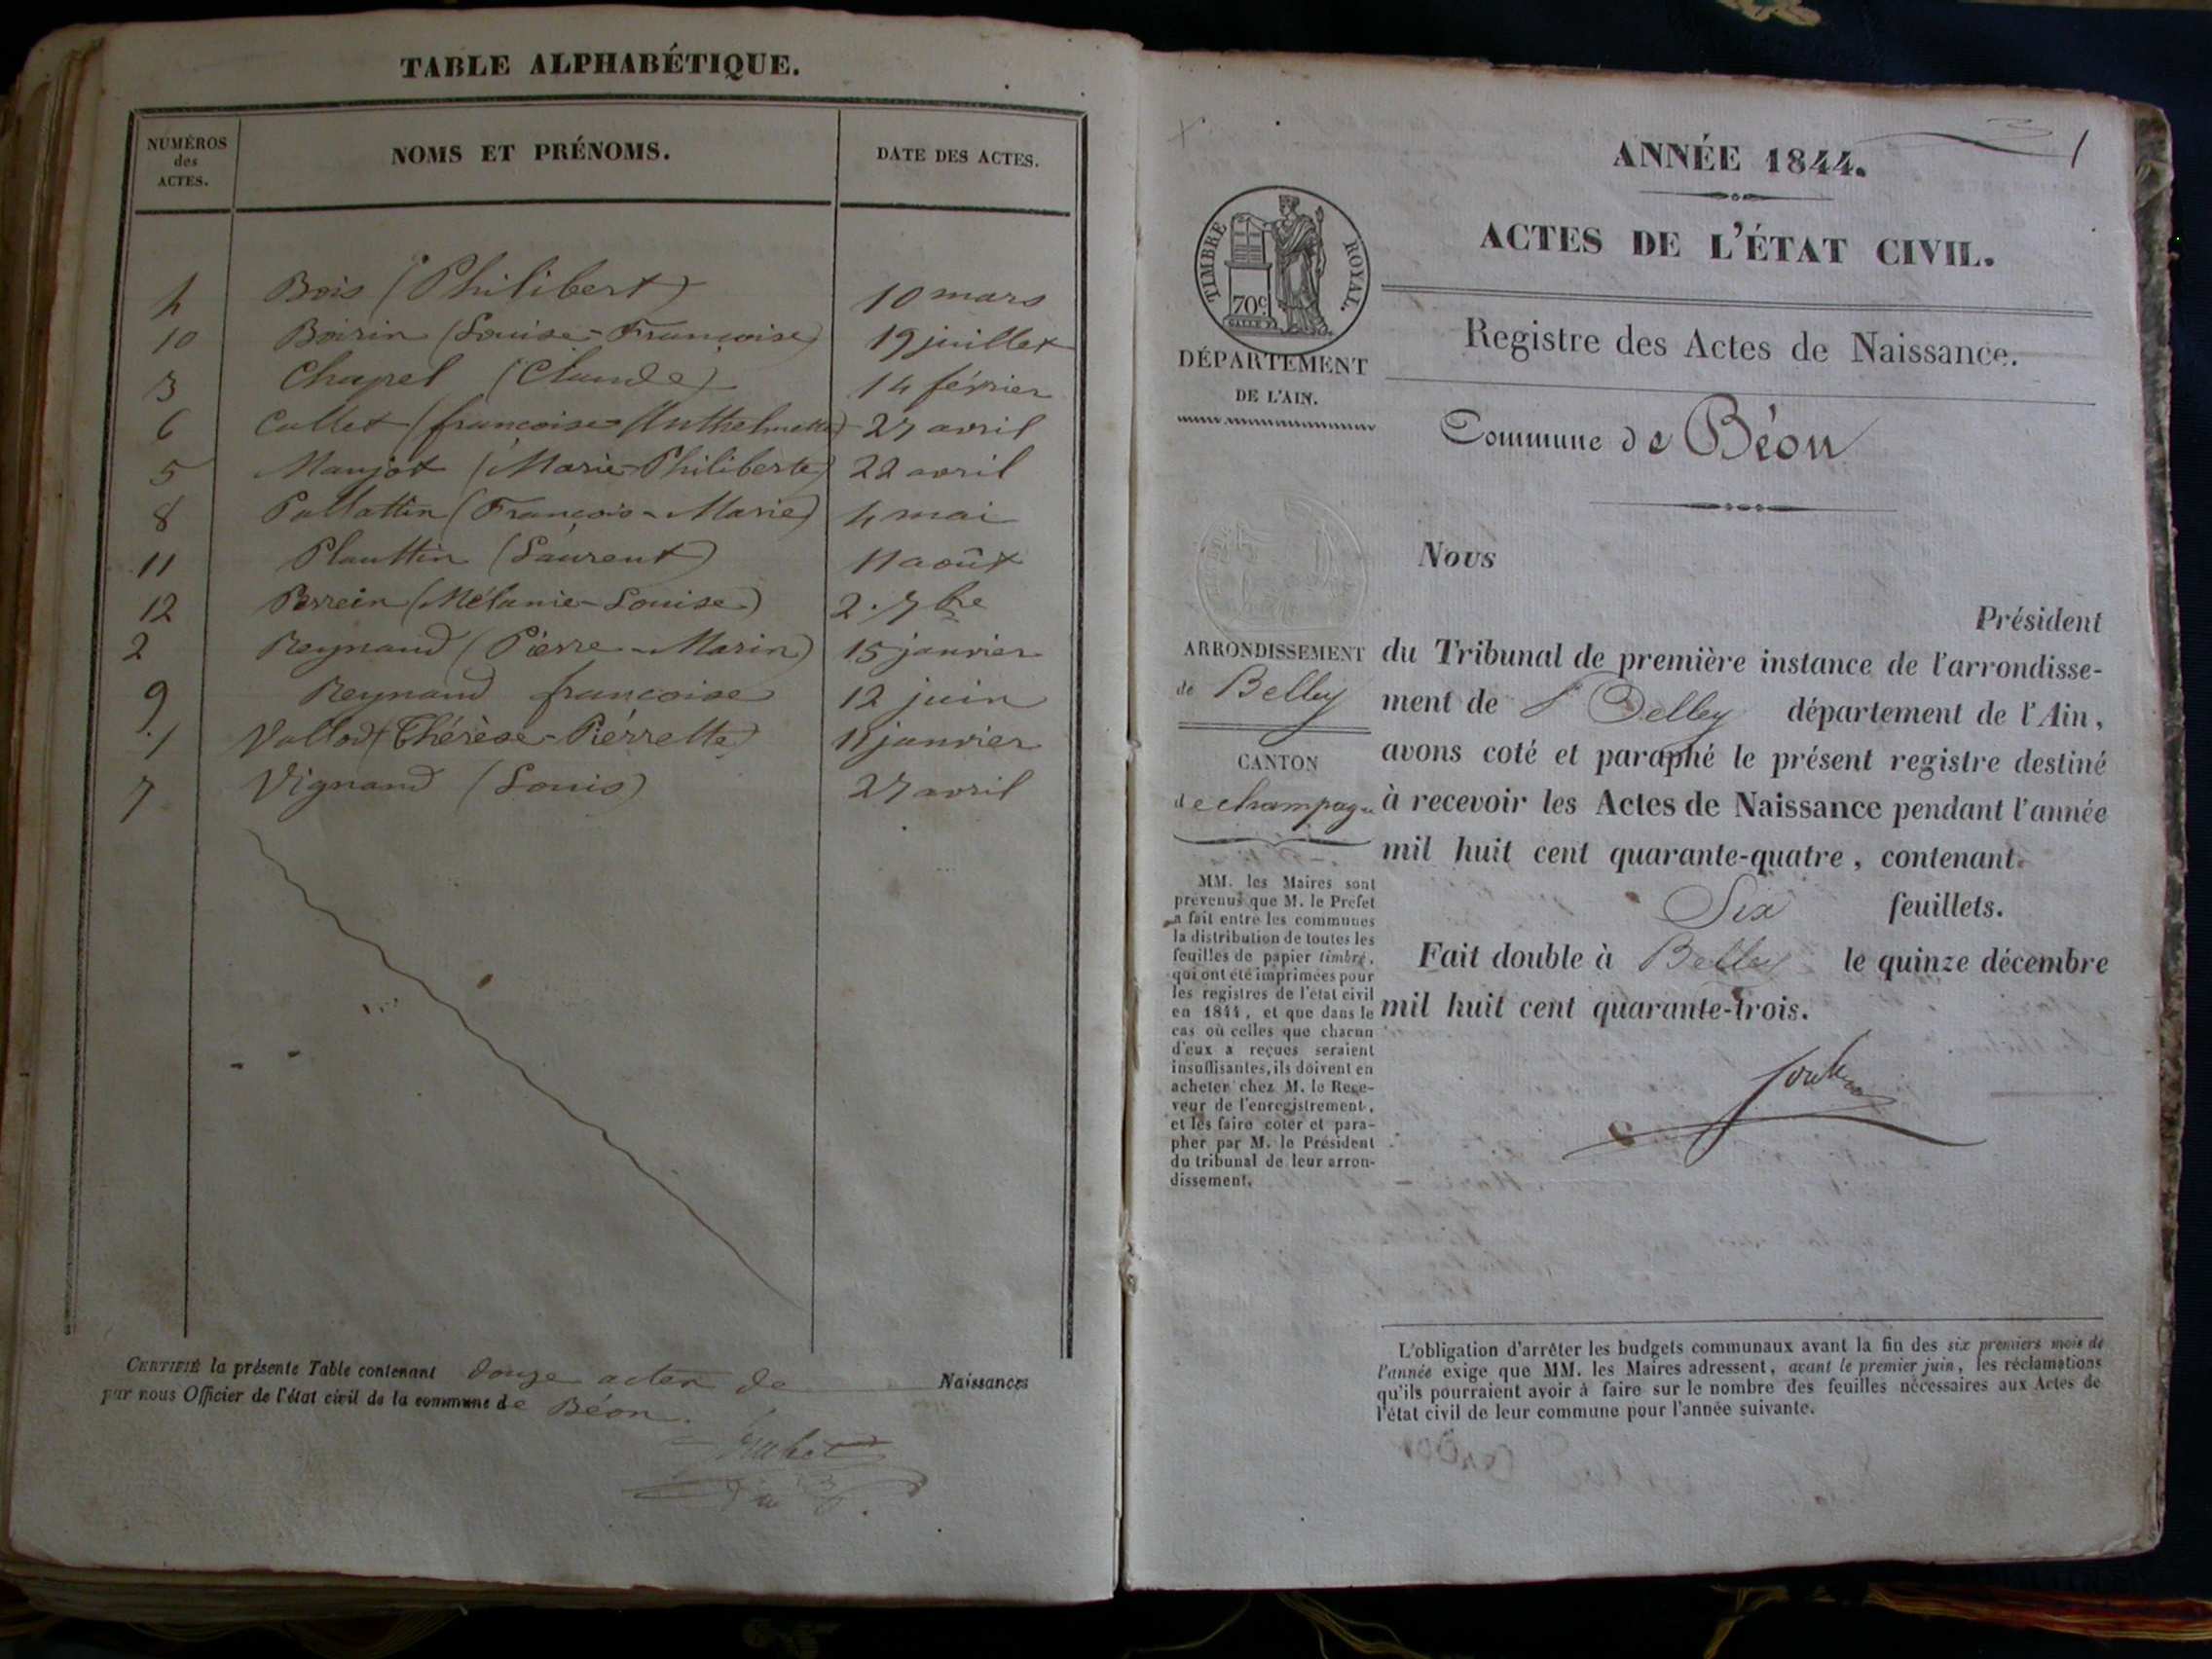 TABLE ALPHABÉTIQUE.
NUMÉROS des ACTES. NOMS ET PRÉNOMS. DATE DES ACTES.
4 Bois (Philibert) 10 mars
10 Boirin (Louise-Françoise) 19 juillet
3 Chapel (Claude) 14 février
6 Collet (françoise Anthelmette) 27 avril
5 Maujot (Marie-Philiberte) 22 avril
8 Pallattin (François-Marie) 4 mai
11 Plauttin (Laurent) 11 août
12 Perrein (Mélanie-Louise) 2. 7bre
2 Reynaud (Pierre-Marin) 15 janvier
9 Reynaud françoise 12 juin
1 Vallod (Thérèse-Pierrette) 11 janvier
7 Vignand (Louis) 27 avril
CERTIFIÉ la présente Table contenant douze actes de Naissances
par nous Officier de l'état civil de la commune de Béon.
1
ANNÉE 1844.
ACTES DE L'ÉTAT CIVIL.
TIMBRE ROYAL.
70c.
DÉPARTEMENT
DE L'AIN.
Registre des Actes de Naissance.
Commune de Béon
Nous
Président
ARRONDISSEMENT
de Belley
CANTON
de champagne
du Tribunal de première instance de l'arrondisse-
ment de Belley département de l'Ain,
avons coté et paraphé le présent registre destiné
à recevoir les Actes de Naissance pendant l'année
mil huit cent quarante-quatre, contenant
Six feuillets.
Fait double à Belley le quinze décembre
mil huit cent quarante-trois.
MM. les Maires sont
prévenus que M. le Préfet
a fait entre les communes
la distribution de toutes les
feuilles de papier timbré,
qui ont été imprimées pour
les registres de l'état civil
en 1844, et que dans le
cas où celles que chacun
d'eux a reçues seraient
insuffisantes, ils doivent en
acheter chez M. le Rece-
veur de l'enregistrement,
et les faire coter et para-
pher par M. le Président
du tribunal de leur arron-
dissement.
L'obligation d'arrêter les budgets communaux avant la fin des six premiers mois de
l'année exige que MM. les Maires adressent, avant le premier juin, les réclamations
qu'ils pourraient avoir à faire sur le nombre des feuilles nécessaires aux Actes de
l'état civil de leur commune pour l'année suivante.